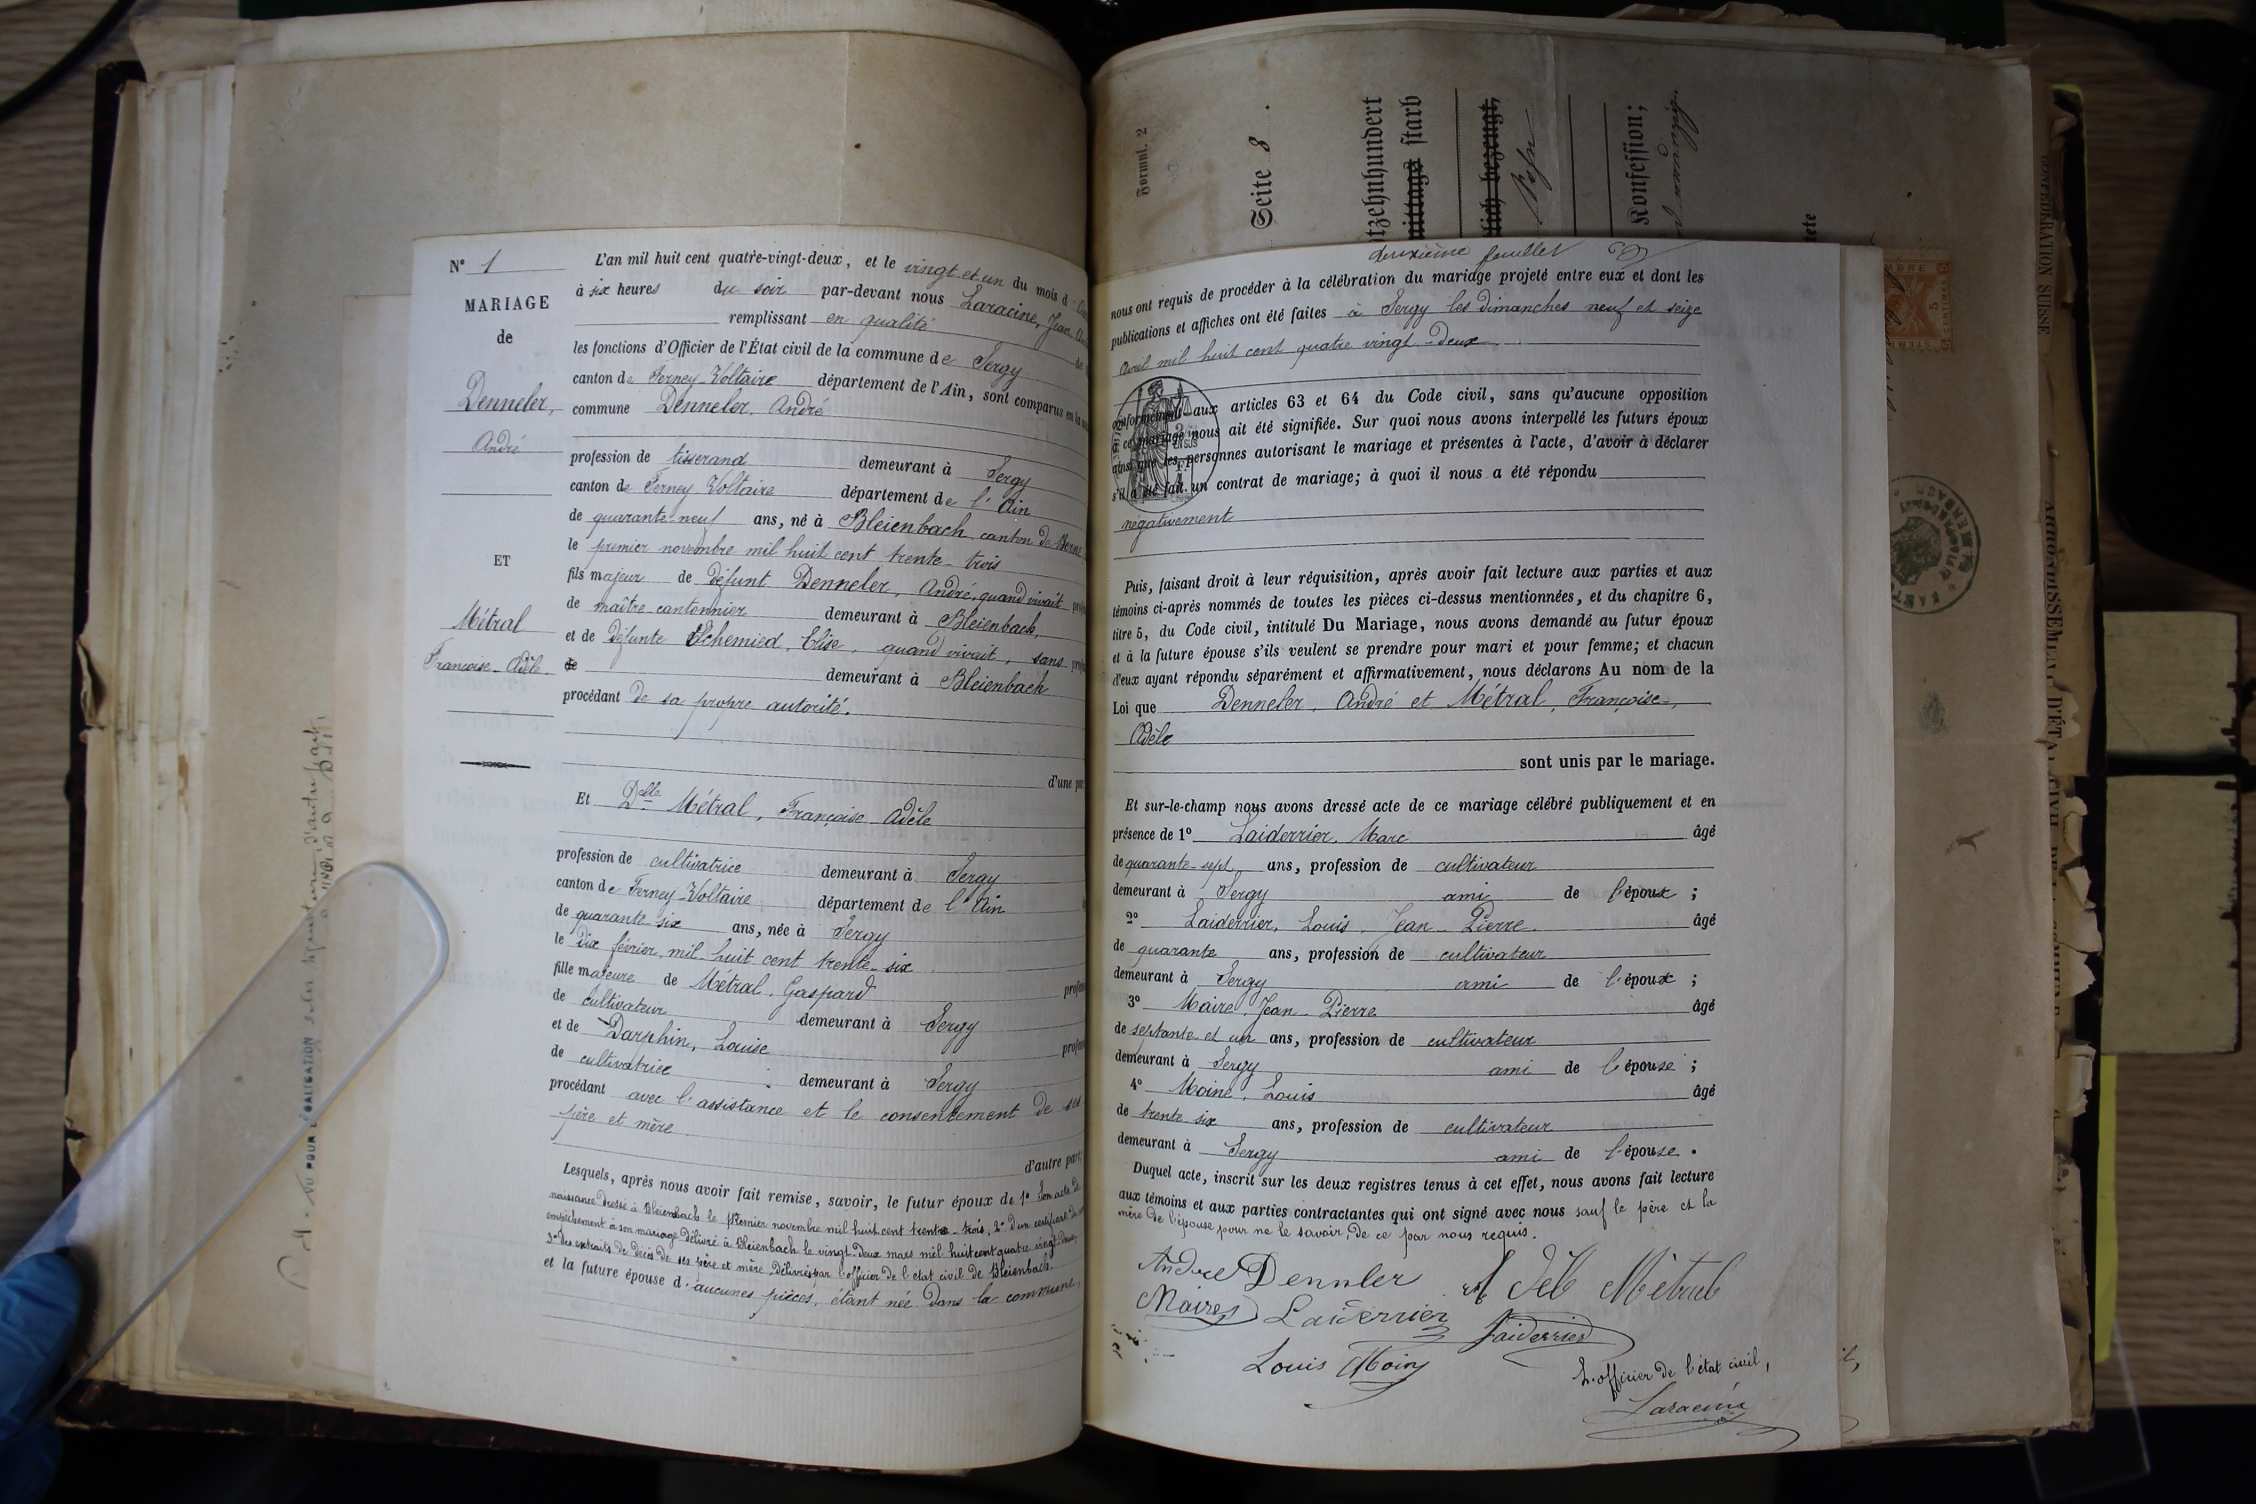 N° 1
MARIAGE
de
Denneler,
André
ET
Métral
Françoise Adèle
L'an mil huit cent quatre-vingt-deux, et le vingt et un du mois d'
à six heures du soir par-devant nous Laracine, Jean
remplissant en qualité de
les fonctions d'Officier de l'État civil de la commune de Sergy
canton de Ferney Voltaire département de l'Ain, sont comparus en la
commune Denneler, André
profession de tisserand demeurant à Sergy
canton de Ferney Voltaire département de l'Ain
de quarante neuf ans, né à Bleienbach canton de Berne
le premier novembre mil huit cent trente-trois
fils majeur de défunt Denneler, André, quand vivait
de maître-cantonnier demeurant à Bleienbach,
et de défunte Schemied, Elise, quand vivait, sans
de demeurant à Bleienbach
procédant de sa propre autorité.
d'une par
Et Delle Métral, Françoise Adèle
profession de cultivatrice demeurant à Sergy
canton de Ferney-Voltaire département de l'Ain
de quarante-six ans, née à Sergy
le dix février mil huit cent trente-six
fille majeure de Métral, Gaspard profess
de cultivateur demeurant à Sergy
et de Darphin, Louise profess
de cultivatrice demeurant à Sergy
procédant avec l'assistance et le consentement de ses
père et mère
d'autre part;
Lesquels, après nous avoir fait remise, savoir, le futur époux de 1° Son acte de
naissance dressé à Bleienbach le premier novembre mil huit cent trente-trois, 2° D'un certificat de
empêchement à son mariage délivré à Bleienbach le vingt-deux mars mil huit cent quatre vingt deux,
3° des extraits de décès de ses père et mère délivrés par l'officier de l'état civil de Bleienbach.
et la future épouse d'aucunes pièces, étant née dans la commune,
VU POUR LÉGALISATION
Formul. 2
Seite 8
tzehnhundert
mittags starb
lich bezeugt,
Konfession;
CONFÉDÉRATION SUISSE
deuxième feuillet
nous ont requis de procéder à la célébration du mariage projeté entre eux et dont les
publications et affiches ont été faites à Sergy les dimanches neuf et seize
avril mil huit cent quatre vingt-deux
conformément aux articles 63 et 64 du Code civil, sans qu'aucune opposition
à ce mariage nous ait été signifiée. Sur quoi nous avons interpellé les futurs époux
ainsi que les personnes autorisant le mariage et présentes à l'acte, d'avoir à déclarer
s'il a été fait un contrat de mariage; à quoi il nous a été répondu
négativement
Puis, faisant droit à leur réquisition, après avoir fait lecture aux parties et aux
témoins ci-après nommés de toutes les pièces ci-dessus mentionnées, et du chapitre 6,
titre 5, du Code civil, intitulé Du Mariage, nous avons demandé au futur époux
et à la future épouse s'ils veulent se prendre pour mari et pour femme; et chacun
d'eux ayant répondu séparément et affirmativement, nous déclarons Au nom de la
Loi que Denneler, André et Métral, Françoise,
Adèle
sont unis par le mariage.
Et sur-le-champ nous avons dressé acte de ce mariage célébré publiquement et en
présence de 1° Laiderrier, Marc âgé
de quarante-sept ans, profession de cultivateur
demeurant à Sergy ami de l'époux ;
2° Laiderrier, Louis, Jean-Pierre âgé
de quarante ans, profession de cultivateur
demeurant à Sergy ami de l'époux ;
3° Maire, Jean-Pierre âgé
de septante et un ans, profession de cultivateur
demeurant à Sergy ami de l'épouse ;
4° Moine, Louis âgé
de trente six ans, profession de cultivateur
demeurant à Sergy ami de l'épouse.
Duquel acte, inscrit sur les deux registres tenus à cet effet, nous avons fait lecture
aux témoins et aux parties contractantes qui ont signé avec nous sauf le père et la
mère de l'épouse pour ne le savoir, de ce par nous requis.
Andre Dennler
Métral
Maire Laiderrier
Laiderrier
Louis Moine
L'officier de l'état civil,
Laracine